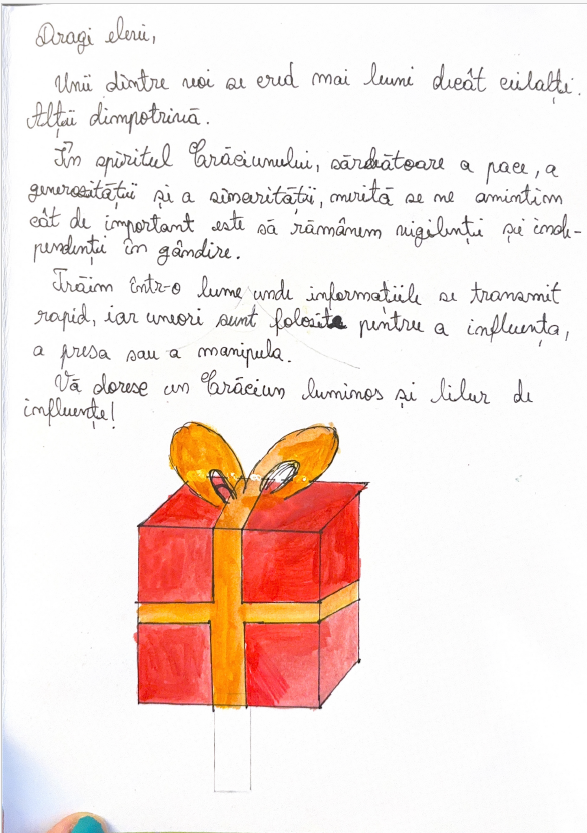 Dragi elevi,
Unii dintre noi se cred mai buni decât ceilalți.
Alții dimpotrivă.
În spiritul Crăciunului, sărbătoare a păcii, a
generozității și a sincerității, merită să ne amintim
cât de important este să rămânem vigilenți și inde-
pendenți în gândire.
Trăim într-o lume unde informațiile se transmit
rapid, iar uneori sunt folosite pentru a influența,
a presa sau a manipula.
Vă doresc un Crăciun luminos și liber de
influențe!